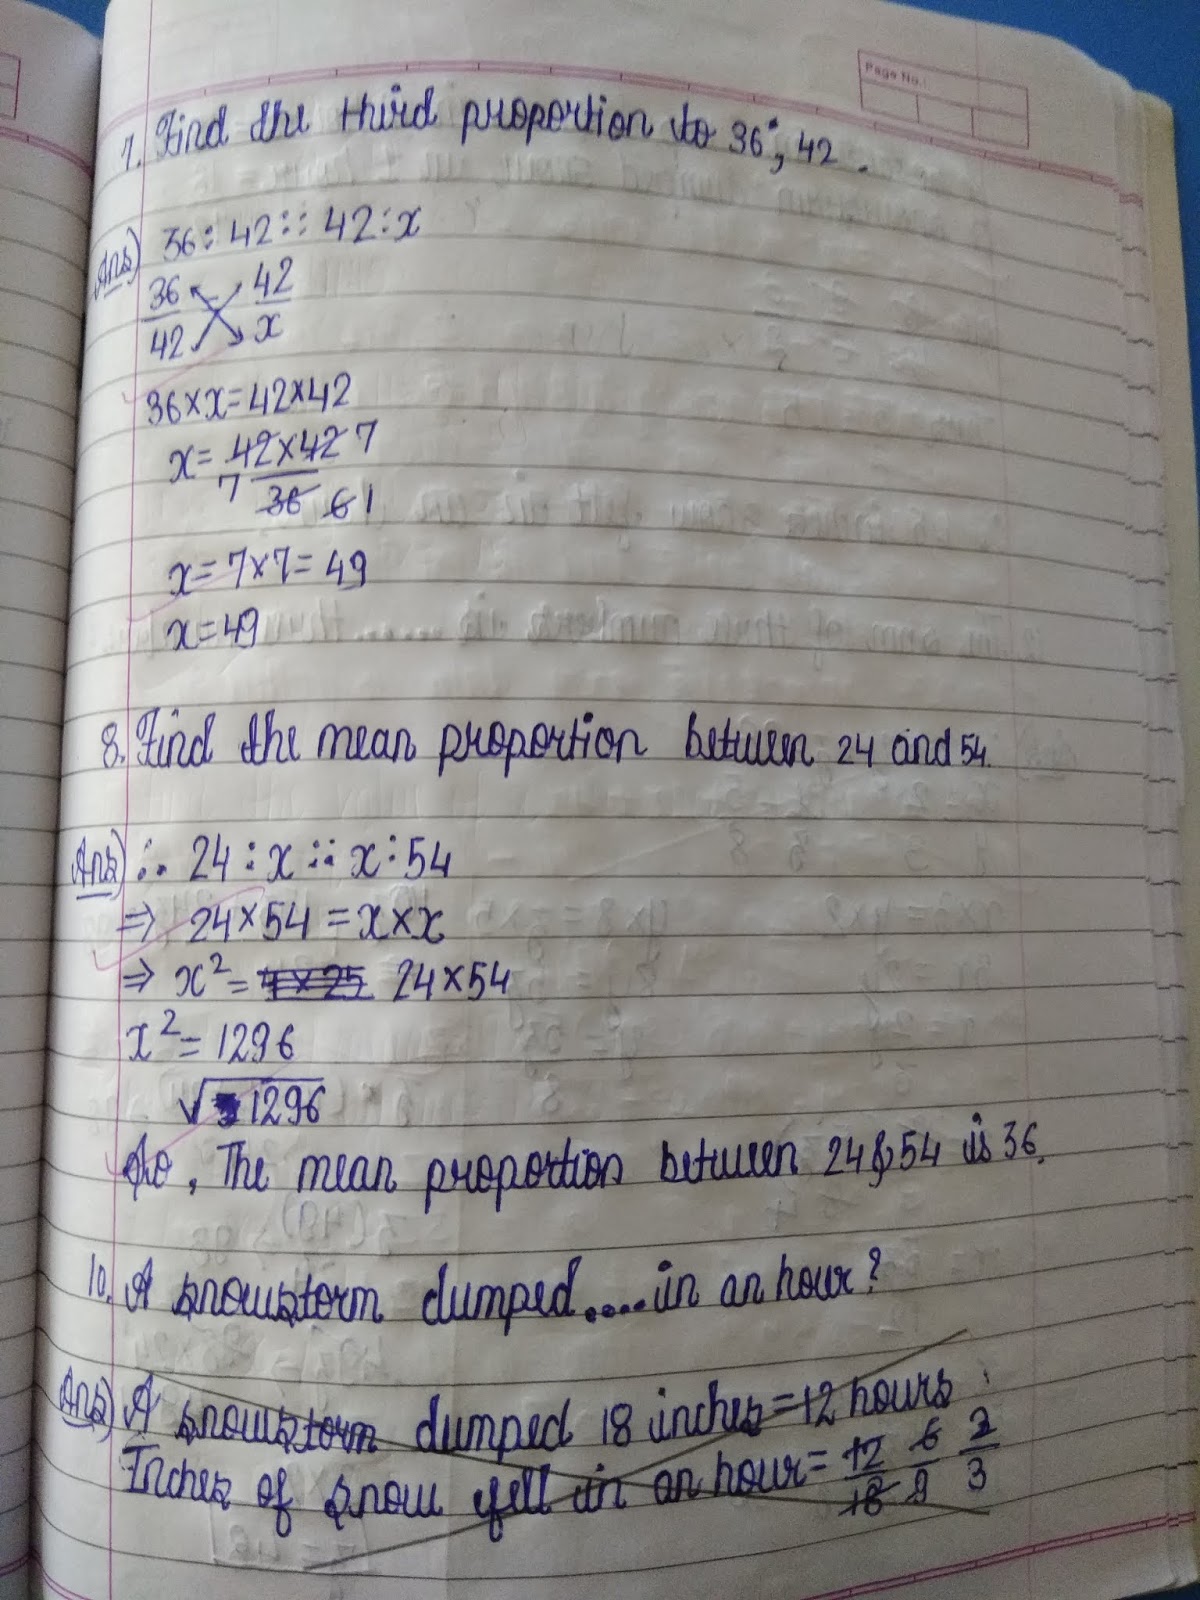 Page No.:
7. Find the third proportion to 36, 42.
Ans) 36:42::42:x
36/42 42/x
36×x=42×42
x= 42×42 7
7 36 6 1
x=7×7=49
x=49
8. Find the mean proportion between 24 and 54.
Ans) ∴ 24:x::x:54
⇒ 24×54=x×x
⇒ x²= 24×54
x²=1296
√1296
So, The mean proportion between 24&54 is 36.
10. A snowstorm dumped.....in an hour?
Ans) A snowstorm dumped 18 inches=12 hours
Inches of snow fell in an hour= 12/18 6/9 2/3